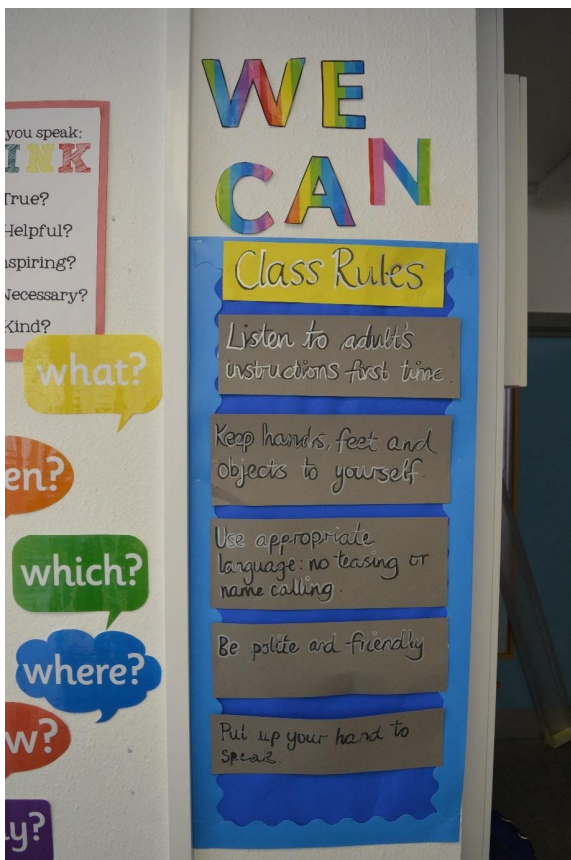 you speak:
INK
True?
Helpful?
nspiring?
Necessary?
Kind?
what?
en?
which?
where?
w?
y?
WE
CAN
Class Rules
Listen to adult's
instructions first time.
Keep hands, feet and
objects to yourself.
Use appropriate
language: no teasing or
name calling.
Be polite and friendly
Put up your hand to
speak.